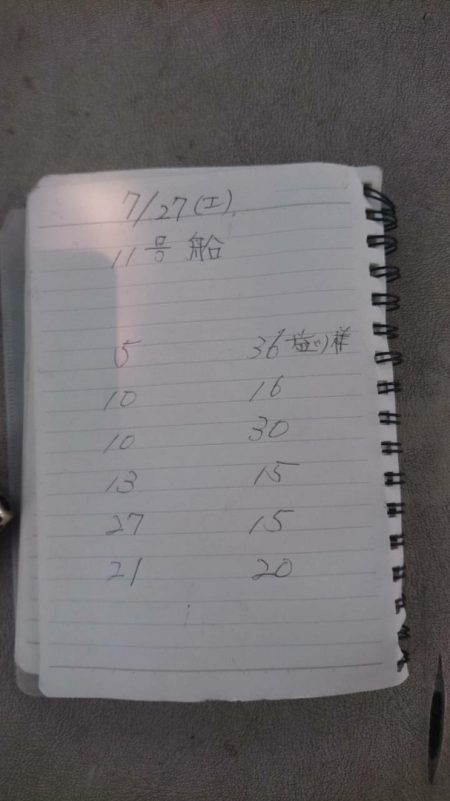 7/27(土)
11号船
5 36 塩り様
10 16
10 30
13 15
27 15
21 20